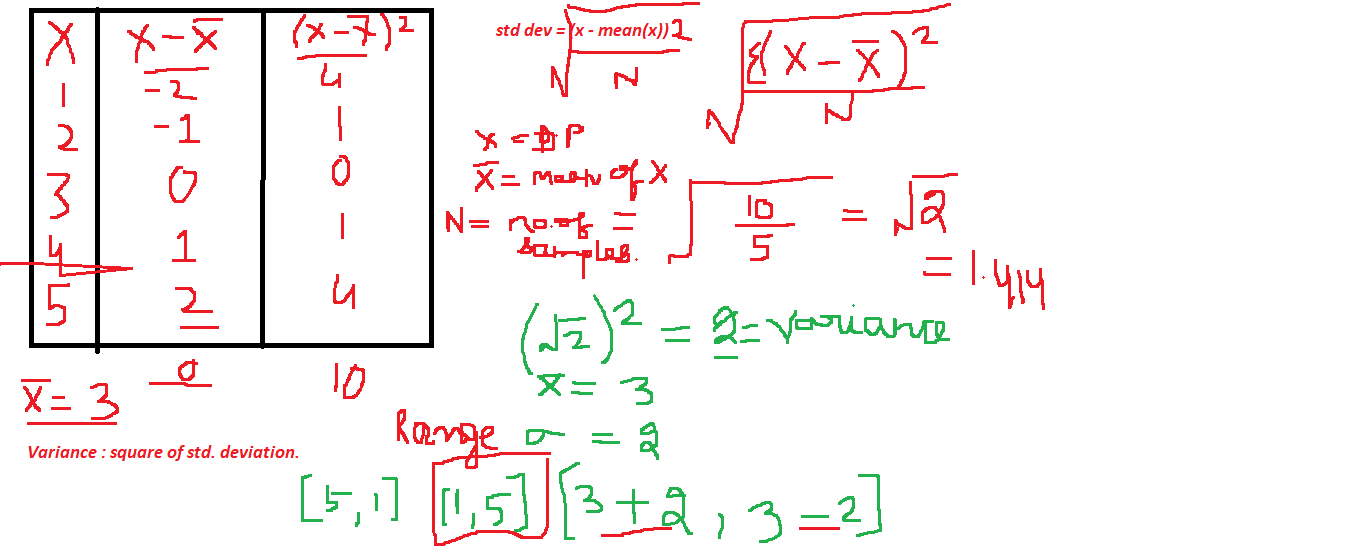 X x - x̄ (x - x̄)²
1 -2 4
2 -1 1
3 0 0
4 1 1
5 2 4
0 10
x̄ = 3
Variance : square of std. deviation.
std dev = √(x - mean(x))2 / N
√Σ(x - x̄)² / N
x = DP
x̄ = mean of x
N = no. of samples.
= √10/5 = √2
= 1.414
(√2)² = 2 = variance
x̄ = 3
σ = 2
Range
[5,1] [1,5] [3+2, 3=2]